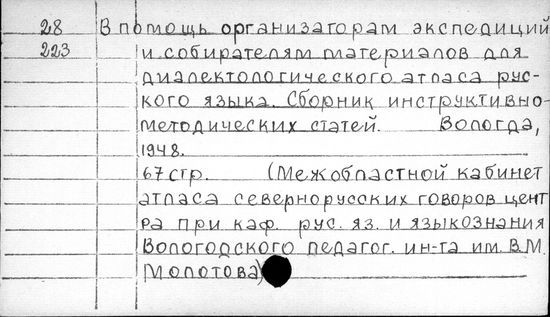 28 В помощь организаторам экспедиций
223 и собирателям материалов для
диалектологического атласа рус-
кого языка. Сборник инструктивно-
методических статей. Вологда,
1948.
67 стр. (Межобластной кабинет
атласа севернорусских говоров цент
ра при каф. рус. яз. и языкознания
Вологодского педагог. ин-та им. В.М.
Молотова)